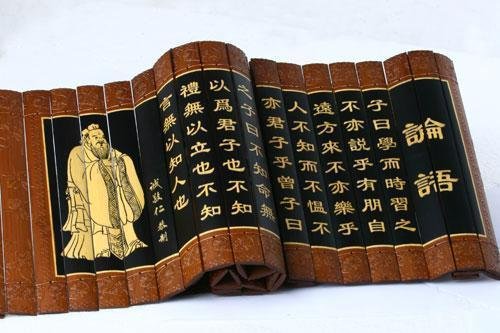 論語
子曰學而時習之
不亦説乎有朋自
遠方來不亦樂乎
人不知而不愠不
亦君子乎曾子曰
之子曰不知命無
以爲君子也不知
禮無以立也不知
言無以知人也
誠敬仁